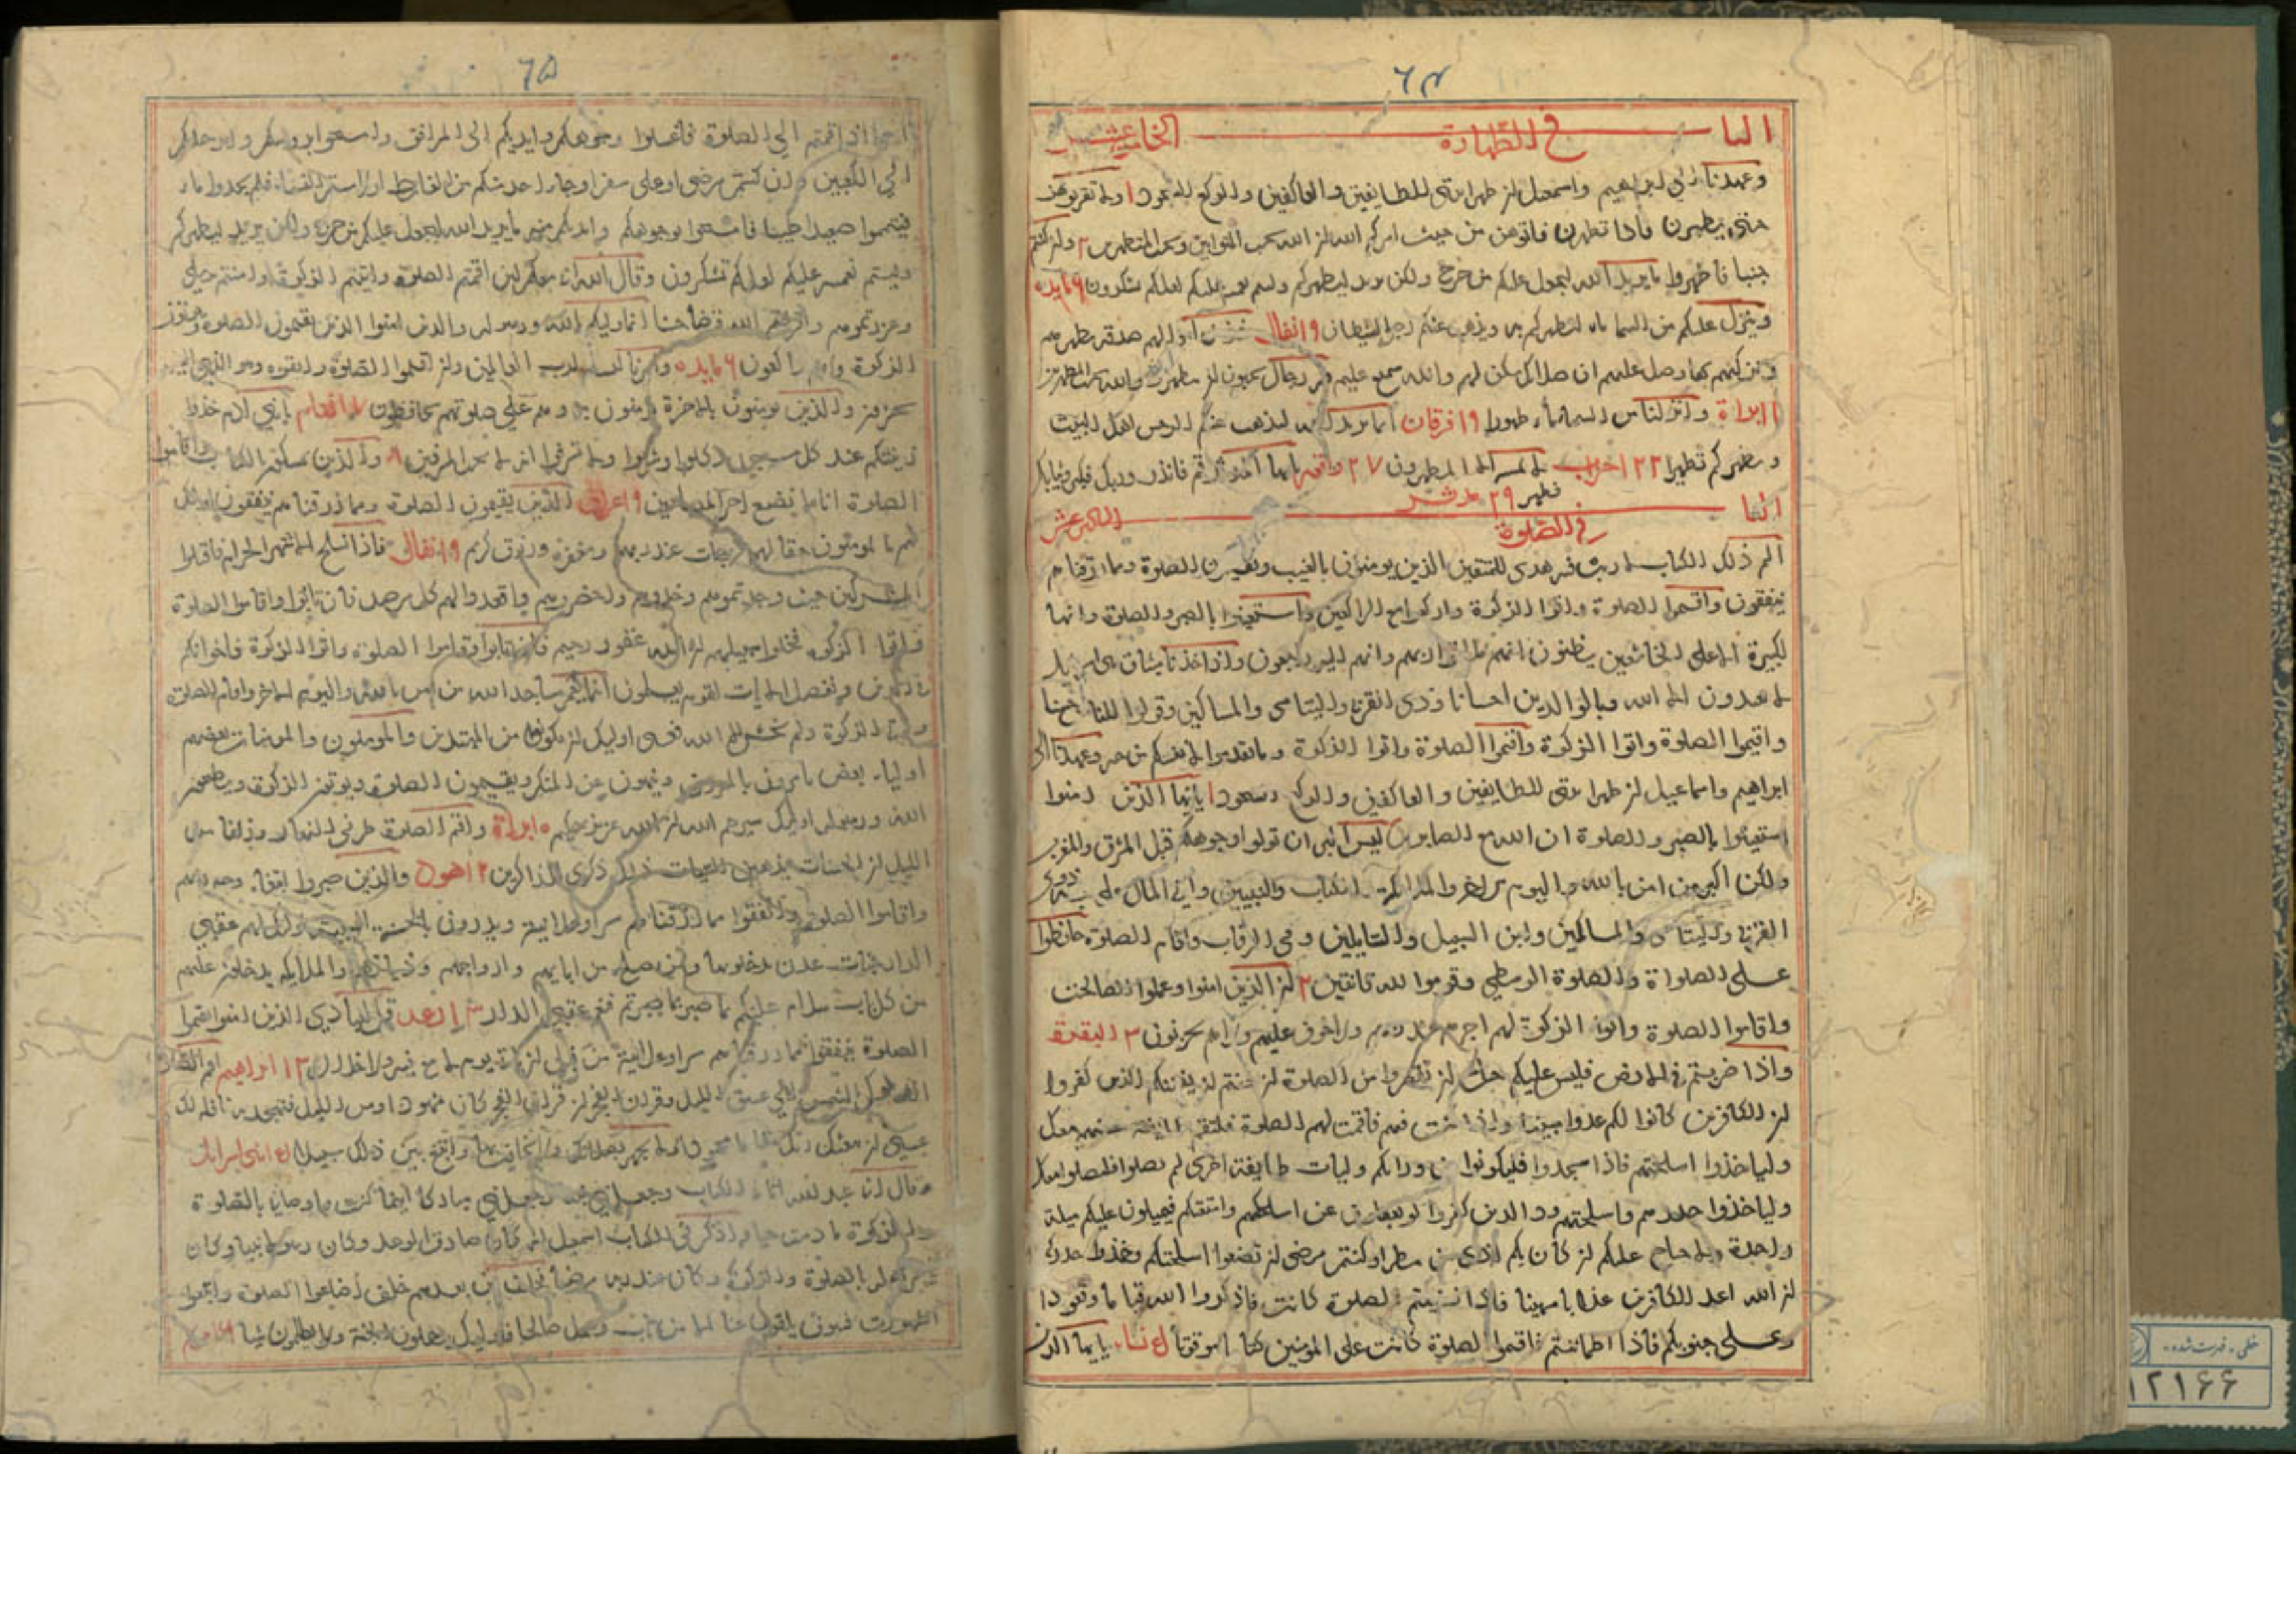 ٦٤
البا
في الطهارة
الخامس عشر
وعهدنا الي ابراهيم واسمعيل ان طهرا بيتي للطايفين والعاكفين والركع السجود ١ ولا تقربوهن
حتي يطهرن فاذا تطهرن فاتوهن من حيث امركم الله ان الله يحب التوابين ويحب المتطهرين ٢ وان كنتم
جنبا فاطهروا ما يريد الله ليجعل عليكم من حرج ولكن يريد ليطهركم وليتم نعمته عليكم لعلكم تشكرون ٦ مايده
وينزل عليكم من السما ماء ليطهركم به ويذهب عنكم رجز الشيطان ٩ انفال خذ من اموالهم صدقة تطهرهم
وتزكيهم بها وصل عليهم ان صلاتك سكن لهم والله سميع عليم فيه رجال يحبون ان يتطهروا والله يحب المطهرين
١١ براة وانزلنا من السما ماء طهورا ١٩ فرقان انما يريد الله ليذهب عنكم الرجس اهل البيت
ويطهركم تطهيرا ٢٢ احزاب لا يمسه الا المطهرون ٢٧ واقعه يا ايها المدثر قم فانذر وربك فكبر وثيابك
فطهر ٢٩ مدثر
البا
في الصلوة
السادس عشر
الم ذلك الكتاب لا ريب فيه هدى للمتقين الذين يومنون بالغيب ويقيمون الصلوة ومما رزقناهم
ينفقون واقيموا الصلوة واتوا الزكوة واركعوا مع الراكعين واستعينوا بالصبر والصلوة وانها
لكبيرة الا على الخاشعين يظنون انهم ملاقوا ربهم وانهم اليه راجعون واذ اخذنا ميثاق بني اسرايل
لا تعبدون الا الله وبالوالدين احسانا وذي القربى واليتامى والمساكين وقولوا للناس حسنا
واقيموا الصلاة واتوا الزكوة واقيموا الصلاة واتوا الزكوة وما تقدموا لانفسكم من خير وعهدنا الى
ابراهيم واسماعيل ان طهرا بيتي للطايفين والعاكفين والركع السجود ١ يا ايها الذين امنوا
استعينوا بالصبر والصلوة ان الله مع الصابرين ليس البر ان تولوا وجوهكم قبل المشرق والمغرب
ولكن البر من امن بالله واليوم الاخر والملائكة والكتاب والنبيين واتي المال على حبه ذوي
القربى واليتامى والمساكين وابن السبيل والسايلين وفي الرقاب واقام الصلوة حافظوا
على الصلواة والصلوة الوسطي وقوموا لله قانتين ٢ ان الذين امنوا وعملوا الصالحات
واقاموا الصلوة واتوا الزكوة لهم اجرهم عند ربهم ولا خوف عليهم ولا هم يحزنون ٣ البقرة
واذا ضربتم في الارض فليس عليكم جناح ان تقصروا من الصلوة ان خفتم ان يفتنكم الذين كفروا
ان الكافرين كانوا لكم عدوا مبينا واذا كنت فيهم فاقمت لهم الصلوة فلتقم طايفة منهم معك
ولياخذوا اسلحتهم فاذا سجدوا فليكونوا من ورائكم ولتات طايفة اخرى لم يصلوا فليصلوا معك
ولياخذوا حذرهم واسلحتهم ود الذين كفروا لو تغفلون عن اسلحتكم وامتعتكم فيميلون عليكم ميلة
واحدة ولا جناح عليكم ان كان بكم اذى من مطر او كنتم مرضى ان تضعوا اسلحتكم وخذوا حذركم
ان الله اعد للكافرين عذابا مهينا فاذا قضيتم الصلوة فاذكروا الله قياما وقعودا
وعلى جنوبكم فاذا اطماننتم فاقيموا الصلوة كانت على المومنين كتابا موقوتا نساء يا ايها الذين
٦٥
امنوا اذا قمتم الي الصلوة فاغسلوا وجوهكم وايديكم الى المرافق وامسحوا برؤسكم وارجلكم
الي الكعبين وان كنتم مرضى او على سفر او جاء احد منكم من الغايط او لامستم النساء فلم تجدوا ماء
فتيمموا صعيدا طيبا فامسحوا بوجوهكم وايديكم منه ما يريد الله ليجعل عليكم من حرج ولكن يريد ليطهركم
وليتم نعمته عليكم لعلكم تشكرون وقال الله اني معكم لئن اقمتم الصلوة واتيتم الزكوة وامنتم برسلي
وعزرتموهم واقرضتم الله قرضا حسنا انما وليكم الله ورسوله والذين امنوا الذين يقيمون الصلوة ويوتون
الزكوة وهم راكعون ٦ مايده وامرنا لنسلم لرب العالمين وان اقيموا الصلوة واتقوه وهو الذي اليه
تحشرون والذين يومنون بالاخرة يومنون به وهم على صلوتهم يحافظون انعام يا بني ادم خذوا
زينتكم عند كل مسجد وكلوا واشربوا ولا تسرفوا انه لا يحب المسرفين ٨ والذين يمسكون بالكتاب واقاموا
الصلوة انا لا نضيع اجر المصلحين ٩ اعراف الذين يقيمون الصلوة ومما رزقناهم ينفقون اولئك
هم المومنون حقا لهم درجات عند ربهم ومغفرة ورزق كريم ٩ انفال فاذا انسلخ الاشهر الحرم فاقتلوا
المشركين حيث وجدتموهم وخذوهم واحصروهم واقعدوا لهم كل مرصد فان تابوا واقاموا الصلوة
واتوا الزكوة فخلوا سبيلهم ان الله غفور رحيم فان تابوا واقاموا الصلوة واتوا الزكوة فاخوانكم
في الدين ونفصل الايات لقوم يعلمون انما يعمر مساجد الله من امن بالله واليوم الاخر واقام الصلوة
واتى الزكوة ولم يخش الا الله فعسى اوليك ان يكونوا من المهتدين والمومنون والمومنات بعضهم
اولياء بعض يامرون بالمعروف وينهون عن المنكر ويقيمون الصلوة ويوتون الزكوة ويطيعون
الله ورسوله اوليك سيرحمهم الله ان الله عزيز حكيم ١٠ براة واقم الصلوة طرفي النهار وزلفا من
الليل ان الحسنات يذهبن السيئات ذلك ذكرى للذاكرين ١٢ هود والذين صبروا ابتغاء وجه ربهم
واقاموا الصلوة وانفقوا مما رزقناهم سرا وعلانية ويدرون بالحسنة السيئة اولئك لهم عقبي
الدار جنات عدن يدخلونها ومن صلح من ابايهم وازواجهم وذرياتهم والملايكة يدخلون عليهم
من كل باب سلام عليكم بما صبرتم فنعم عقبي الدار رعد قل لعبادي الذين امنوا يقيموا
الصلوة ينفقوا مما رزقناهم سرا وعلانية من قبل ان ياتي يوم لا بيع فيه ولا خلال ١٣ ابراهيم اقم الصلوة
لدلوك الشمس الي غسق الليل وقران الفجر ان قران الفجر كان مشهودا ومن الليل فتهجد به نافلة لك
عسى ان يبعثك ربك مقاما محمودا ولا تجهر بصلاتك ولا تخافت بها وابتغ بين ذلك سبيلا بني اسرايل
قال اني عبد الله اتاني الكتاب وجعلني نبيا وجعلني مباركا اينما كنت واوصاني بالصلوة
والزكوة ما دمت حيا واذكر في الكتاب اسمعيل انه كان صادق الوعد وكان رسولا نبيا وكان
يامر اهله بالصلوة والزكوة وكان عند ربه مرضيا فخلف من بعدهم خلف اضاعوا الصلوة واتبعوا
الشهوات فسوف يلقون غيا الا من تاب وعمل صالحا فاوليك يدخلون الجنة ولا يظلمون شيا
١٢١٦٦